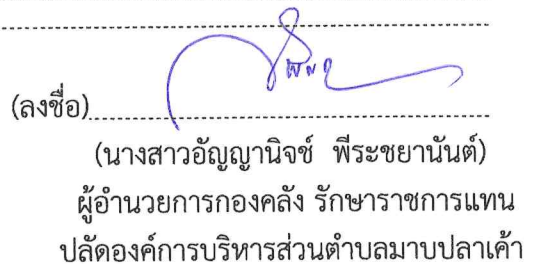 (ลงชื่อ)
(นางสาวอัญญานิจช์ พีระชยานันต์)
ผู้อำนวยการกองคลัง รักษาราชการแทน
ปลัดองค์การบริหารส่วนตำบลมาบปลาเค้า